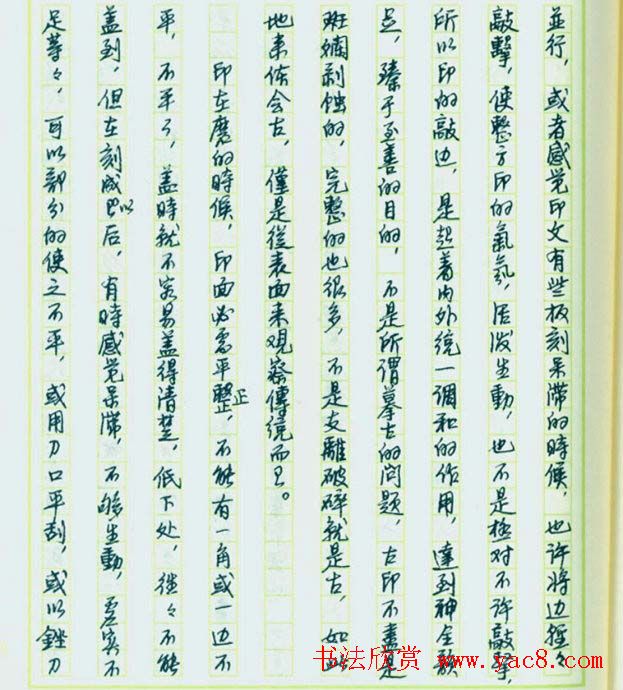 並行，或者感觉印文有些板刻呆滞的時候，也许將边輕々
敲擊，使整方印的氣氛，活潑生動，也不是極对不许敲擊，
所以印的敲边，是起着内外统一调和的作用，達到神全韵
足，臻于至善的目的，不是所謂摹古的问题，古印不盡是
斑斓剥蚀的，完整的也很多，不是支離破碎就是古，如此
地来体会古，僅是從表面来观察傳统而已。
印在磨的時候，印面必意平整正，不能有一角或一边不
平，不平了，盖時就不容易盖得清楚，低下处，往々不能
盖到，但在刻成以后，有時感觉呆滞，不够生動，虚实不
足等々，可以部分的使之不平，或用刀口平刮，或以銼刀
书法欣赏 www.yac8.com